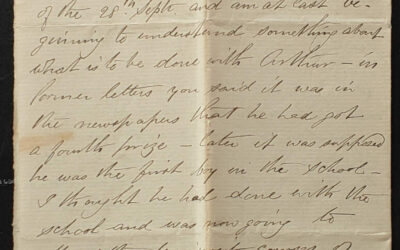 of the 28th Septr and am at last be-
ginning to understand something about
what is to be done with Arthur - in
former letters you said it was in
the newspapers that he had got
a fourth prize - later it was supposed
he was the first boy in the school -
I thought he had done with the
school and was now going to